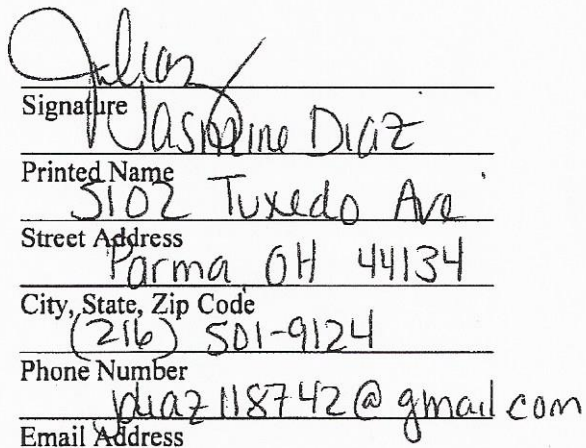 Signature
Jasmine Diaz
Printed Name
5102 Tuxedo Ave
Street Address
Parma OH 44134
City, State, Zip Code
(216) 501-9124
Phone Number
jdiaz118742@gmail.com
Email Address